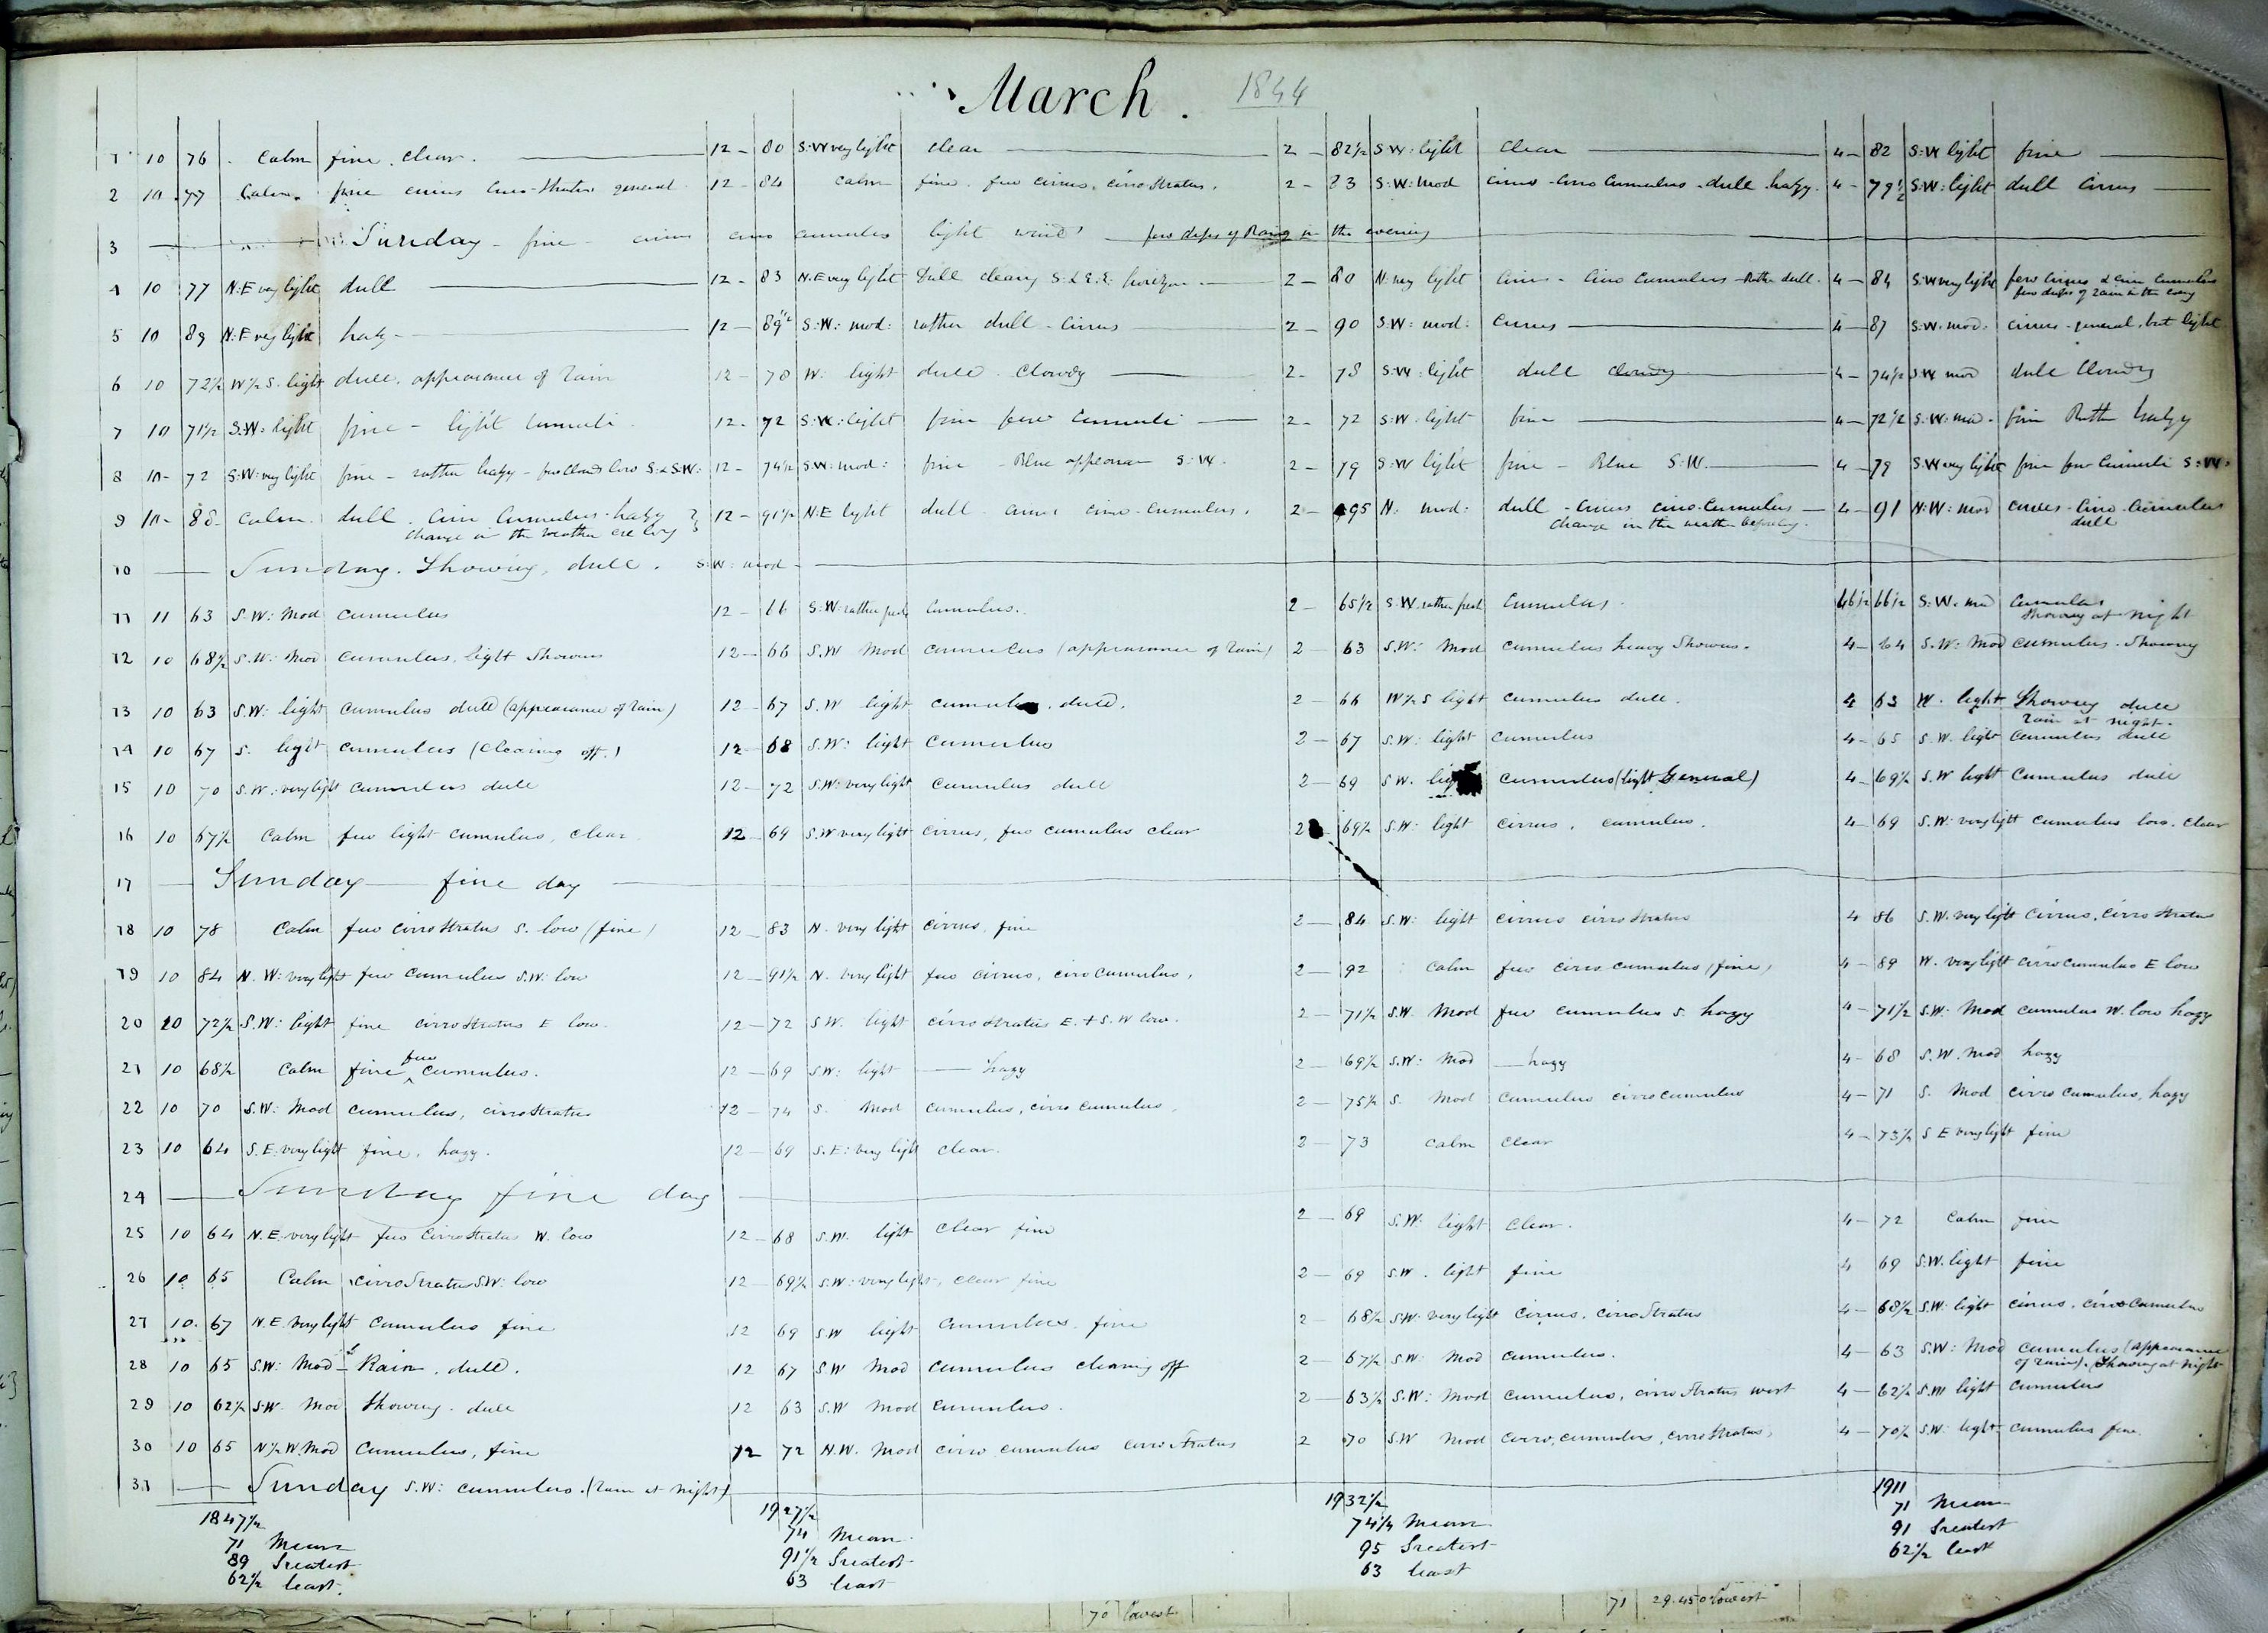 March. 1844
1 10 76 Calm fine clear. 12 - 80 S:W very light clear 2 - 82½ S:W: light Clear 4 - 82 S:W light fine
2 10 77 Calm fine cirrus Cirro-Stratus general 12 - 84 Calm fine. few cirrus, cirro stratus. 2 - 83 S:W: mod cirrus - Cirro Cumulus - dull hazy. 4 - 79½ S:W: light dull Cirrus
3 Sunday - fine cirrus cirro cumulus light wind few drops of Rain in the evening
4 10 77 N:E very light dull 12 - 83 N.E very light Dull cleary S. & E: horizon 2 - 80 N: very light Cirrus - Cirro Cumulus - Rather dull. 4 - 84 S:W very light few Cirrus & Cirro Cumulus
few drops of rain in the eveng
5 10 89 N:E very light hazy 12 - 89½ S:W: mod: rather dull - Cirrus 2 - 90 S.W: mod: Cirrus 4 - 87 S:W. mod: cirrus - general, but light
6 10 72½ W½S. light dull. appearance of rain 12 - 78 W: light dull Cloudy 2 - 78 S:W: light dull cloudy 4 - 74½ S:W mod dull Cloudy
7 10 71½ S:W: light fine - light Cumuli 12 - 72 S:W: light fine few Cumuli 2 - 72 S:W: light fine 4 - 72½ S:W: mod. fine Rather hazy
8 10 - 72 S:W: very light fine - rather hazy - few clouds low S: & S:W: 12 - 74½ S:W: mod: fine - Blue appearance S:W. 2 - 79 S:W light fine - Blue S:W. 4 - 79 S.W very light fine few Cumuli S:W:
9 10 - 88 Calm dull. Cirro Cumulus - hazy 12 - 91½ N:E light dull cirrus cirro-cumulus. 2 - 95 N: mod: dull - Cirrus cirro-Cumulus 4 - 91 N:W: mod cirrus - Cirro-Cumulus
change in the weather ere long change in the weather before long. dull
10 Sunday. Showery, dull. S:W: mod
11 11 63 S.W: Mod cumulus 12 - 66 S:W: rather fresh Cumulus. 2 - 65½ S:W. rather fresh Cumulus. 66½ S:W. mod Cumulus
Showery at night
12 10 68½ S.W: Mod cumulus, light Showers 12 - 66 S.W Mod cumulus (appearance of rain) 2 63 S.W: Mod cumulus heavy Showers. 4 - 64 S.W: Mod cumulus. Showery
13 10 63 S.W: light cumulus dull (appearance of rain) 12 - 67 S.W light cumulus, dull. 2 - 66 W½S light cumulus dull. 4 63 W. light Showery dull
rain at night.
14 10 67 S. light cumulus (clearing off.) 12 68 S.W: light cumulus 2 - 67 S.W: light cumulus 4 - 65 S.W. light Cumulus dull
15 10 70 S.W: very light cumulus dull 12 - 72 S.W: very light cumulus dull 2 - 69 S.W. light cumulus (light General) 4 - 69½ S.W light Cumulus dull
16 10 67½ Calm few light cumulus, clear 12 - 69 S.W very light cirrus, few cumulus clear 2 - 69½ S.W: light cirrus, cumulus. 4 - 69 S.W: very light cumulus low. clear
17 Sunday fine day
18 10 78 Calm few cirro Stratus S. low (fine) 12 - 83 N. very light cirrus fine 2 - 84 S.W: light cirrus cirro Stratus 4 86 S.W. very light cirrus, cirro Stratus
19 10 84 N.W: very light few cumulus S.W: low 12 - 91½ N. very light few cirrus, cirro cumulus. 2 - 92 Calm few cirro cumulus (fine) 4 - 89 W. very light cirro cumulus E low
20 20 72½ S.W: light fine cirro Stratus E low 12 - 72 S.W. light cirro Stratus E. + S.W low. 2 - 71½ S.W. Mod few cumulus S. hazy 4 - 71½ S.W. Mod cumulus W. low hazy
21 10 68½ Calm fine few cumulus. 12 - 69 S.W: light hazy 2 - 69½ S.W: Mod hazy 4 - 68 S.W. Mod hazy
22 10 70 S.W: Mod cumulus, cirro Stratus 12 - 74 S. Mod cumulus, cirro cumulus 2 - 75½ S. Mod Cumulus cirro cumulus 4 - 71 S. Mod cirro cumulus, hazy
23 10 64 S.E. very light fine, hazy. 12 - 69 S.E: very light clear. 2 - 73 Calm Clear 4 - 73½ S E very light fine
24 Sunday fine day
25 10 64 N.E. very light few Cirro Stratus W. low 12 - 68 S.W. light clear fine 2 - 69 S.W. light clear. 4 - 72 Calm fine
26 10 65 Calm cirro Stratus S.W: low 12 - 69½ S.W: very light, clear fine 2 - 69 S.W. light fine 4 69 S.W. light fine
27 10 67 N.E. very light Cumulus fine 12 69 S.W light Cumulus fine 2 - 68½ S.W. very light cirrus. cirro Stratus 4 - 68½ S.W: light cirrus, cirro Cumulus
28 10 65 S.W: Mod Rain. dull. 12 67 S.W Mod cumulus clearing off 2 - 67½ S.W: Mod cumulus. 4 - 63 S.W: Mod cumulus (appearance
of rain). (Showery at night
29 10 62½ S.W. Mod Showery. dull 12 63 S.W Mod cumulus. 2 - 63½ S.W: Mod cumulus, cirro Stratus west 4 - 62½ S.W light cumulus
30 10 65 N½W Mod Cumulus, fine 12 72 N.W. Mod cirro cumulus cirro Stratus 2 70 S.W Mod cirro, cumulus, cirro Stratus, 4 - 70½ S.W: light cumulus fine.
31 Sunday S.W: cumulus. (rain at night)
1847½ 1927½ 1932½ 1911
71 Mean 74 Mean 74¼ Mean 71 Mean
89 Greatest 91½ Greatest 95 Greatest 91 Greatest
62½ least. 63 least 63 least 62½ least
70 lowest 71 29.450 lowest